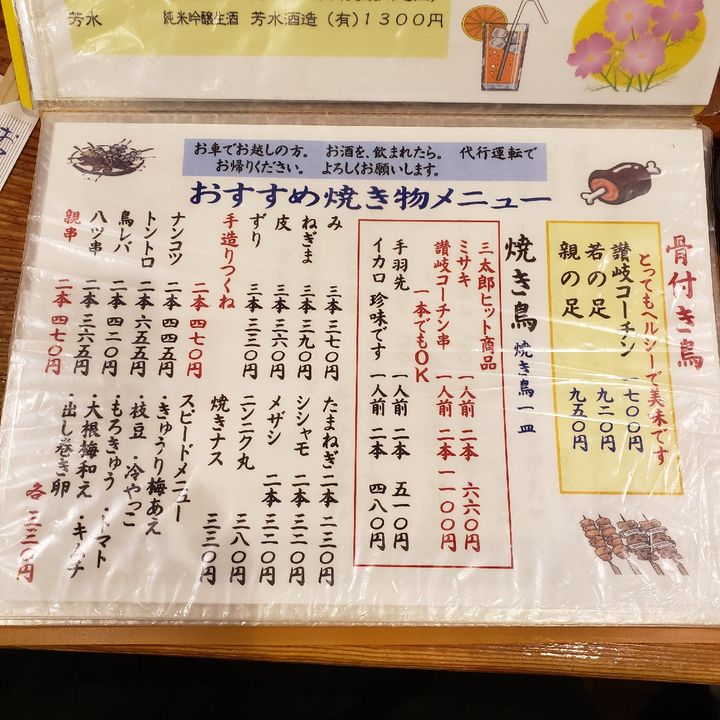 芳水 純米吟醸生酒 芳水酒造(有)1300円
お車でお越しの方。 お酒を、飲まれたら。 代行運転で
お帰りください。 よろしくお願いします。
おすすめ焼き物メニュー
骨付き鳥
とってもヘルシーで美味です
讃岐コーチン 一七〇〇円
若の足 九二〇円
親の足 九五〇円
焼き鳥 焼き鳥一皿
三太郎ヒット商品
ミサキ 一人前 二本 六六〇円
讃岐コーチン串 一人前 二本 一一〇〇円
一本でもOK
手羽先 一人前 二本 五一〇円
イカロ 珍味です 一人前 二本 四八〇円
み 三本 三七〇円
ねぎま 三本 三九〇円
皮 三本 三六〇円
ずり 三本 三三〇円
手造りつくね 二本 四七〇円
ナンコツ 二本 四四五円
トントロ 二本 六五五円
鳥レバ 二本 四二〇円
ハツ串 二本 三六五円
親串 二本 四七〇円
たまねぎ 二本 二三〇円
シシャモ 二本 三二〇円
メザシ 二本 三二〇円
ニンニク丸 三八〇円
焼きナス 三三〇円
スピードメニュー
・きゅうり梅あえ
・枝豆 ・冷やっこ
・もろきゅう ・トマト
・大根梅和え ・キムチ
・出し巻き卵 各 三三〇円